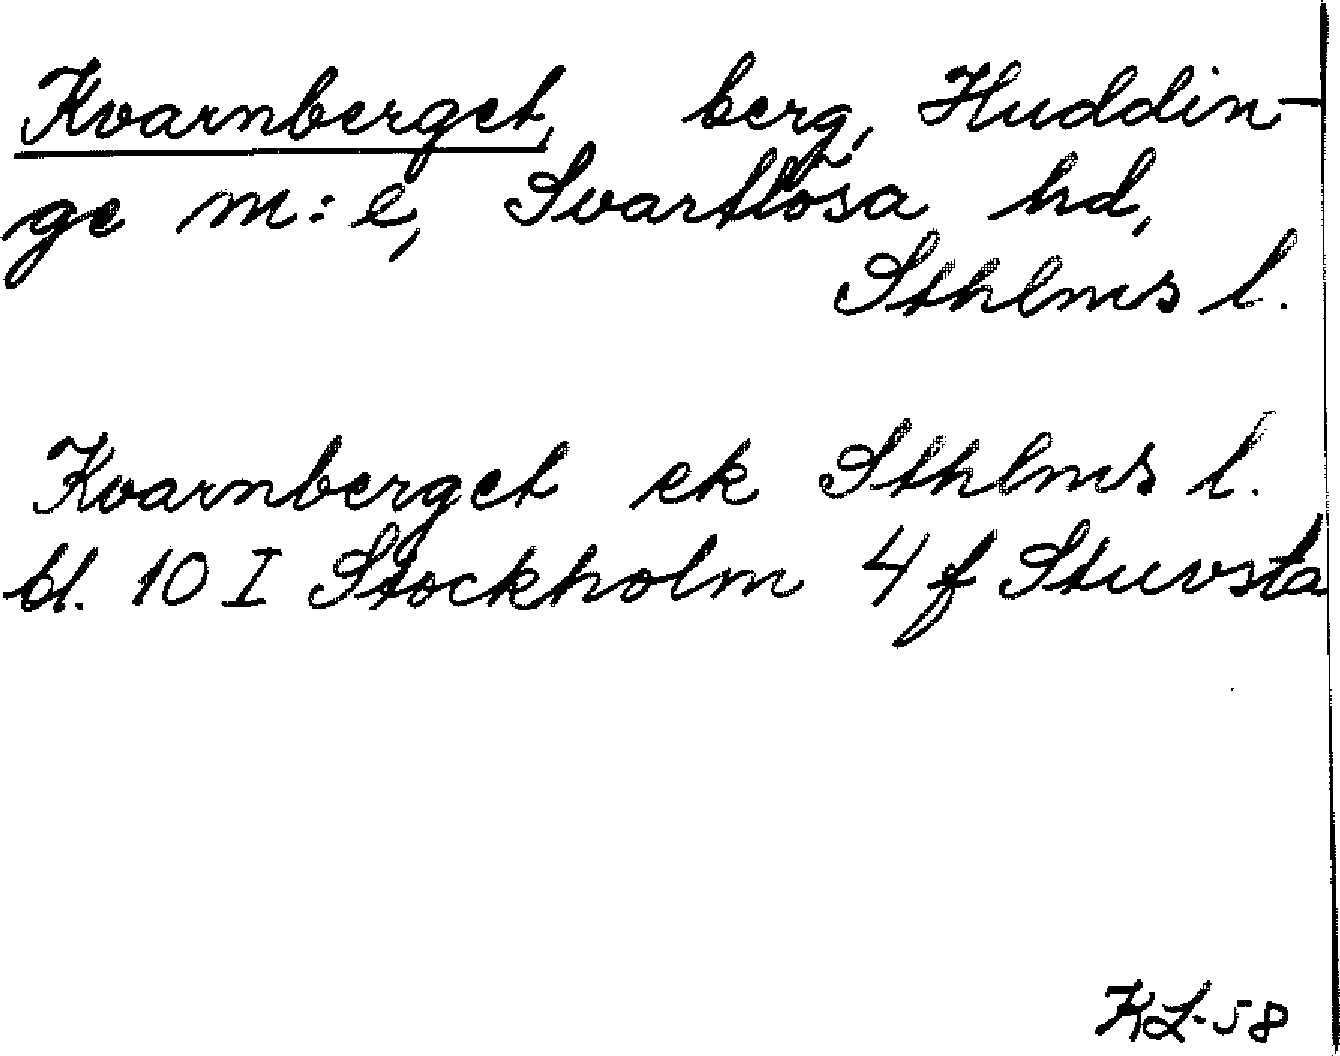 Kvarnberget, berg, Huddin-
ge m:e, Svartlösa hd,
Sthlms l.
Kvarnberget ek Sthlms l.
bl. 10 I Stockholm 4 f Stuvsta
KL-58